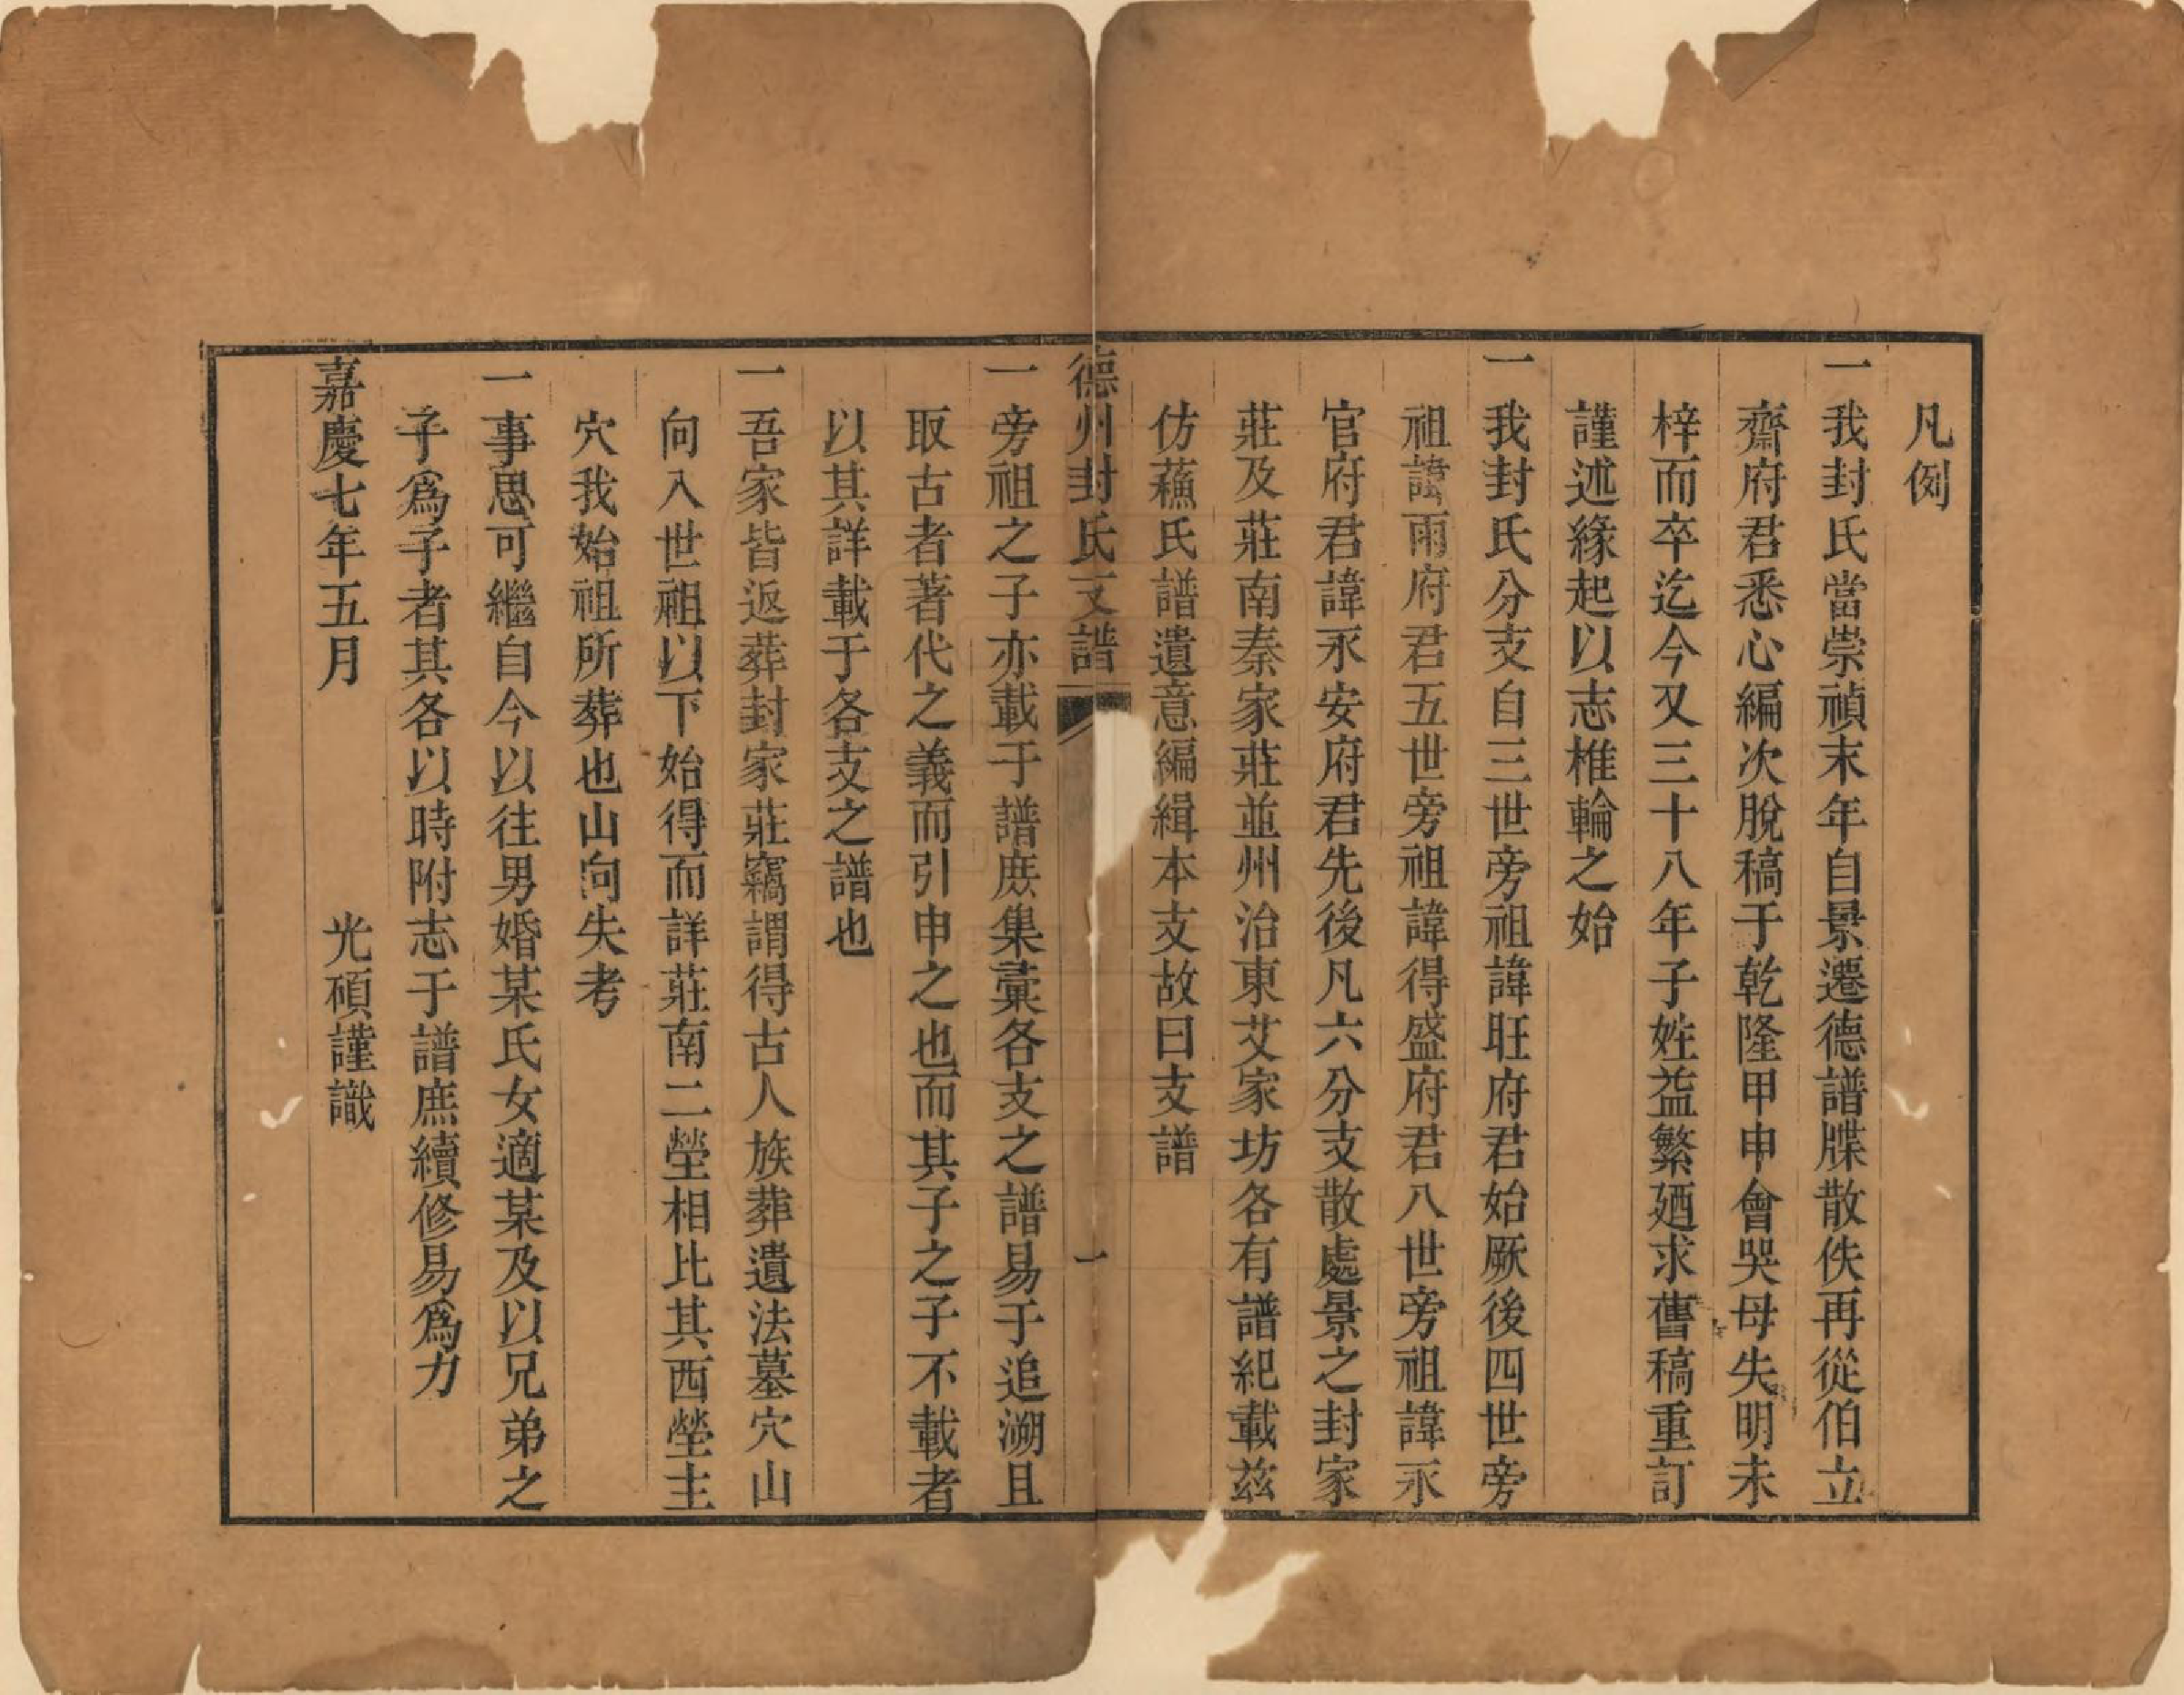 凡例
一我封氏當崇禎末年自景遷德譜牒散佚再從伯立
齋府君悉心編次脫稿于乾隆甲申會哭母失明未
梓而卒迄今又三十八年子姓益繁廼求舊稿重訂
謹述緣起以志椎輪之始
一我封氏分支自三世旁祖諱旺府君始厥後四世旁
祖諱雨府君五世旁祖諱得盛府君八世旁祖諱永
官府君諱永安府君先後凡六分支散處景之封家
莊及莊南秦家莊並州治東艾家坊各有譜紀載茲
仿蘓氏譜遺意編緝本支故曰支譜
德州封氏支譜 一
一旁祖之子亦載于譜庶集彙各支之譜易于追溯且
取古者著代之義而引申之也而其子之子不載者
以其詳載于各支之譜也
一吾家皆返葬封家莊竊謂得古人族葬遺法墓穴山
向入世祖以下始得而詳莊南二塋相比其西塋主
穴我始祖所葬也山向失考
一事思可繼自今以往男婚某氏女適某及以兄弟之
子爲子者其各以時附志于譜庶續修易爲力
嘉慶七年五月 光碩謹識